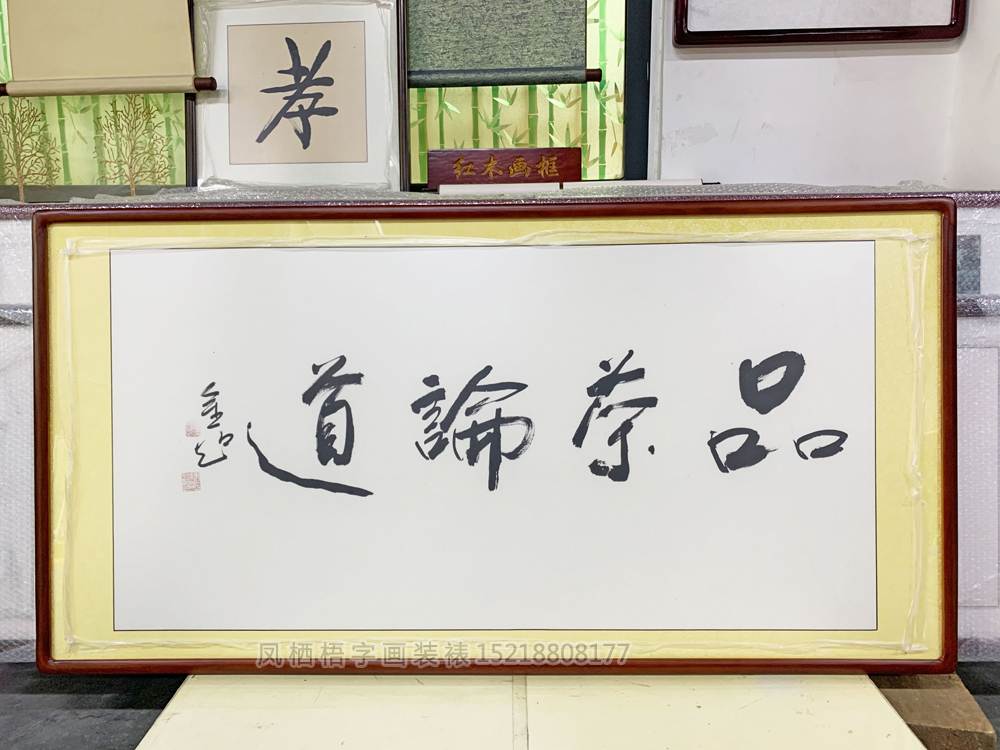 孝
红木画框
品茶論道
凤栖梧字画装裱15218808177